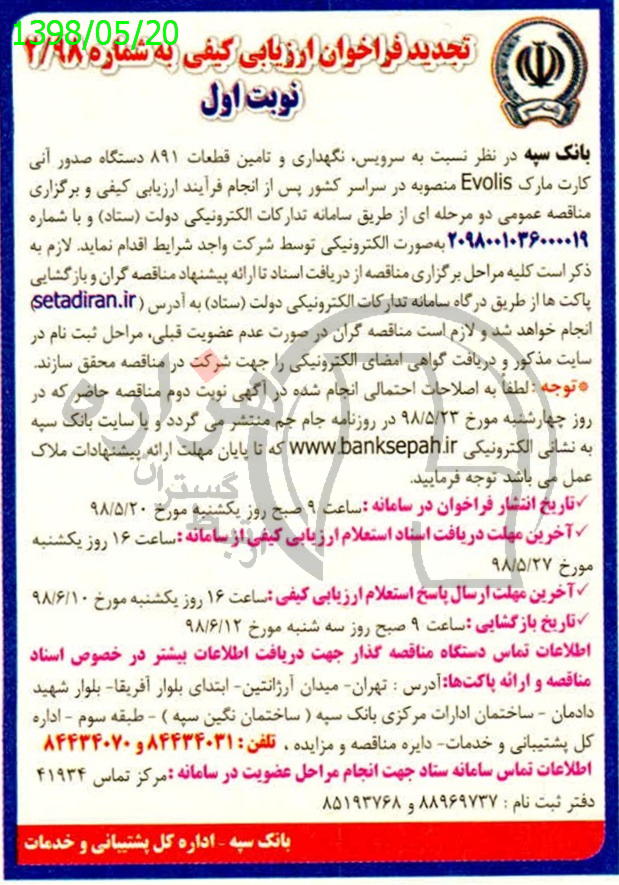 1398/05/20
تجدید فراخوان ارزیابی کیفی به شماره ۲/۹۸
نوبت اول
بانک سپه در نظر نسبت به سرویس، نگهداری و تامین قطعات ۸۹۱ دستگاه صدور آنی
کارت مارک Evolis منصوبه در سراسر کشور پس از انجام فرآیند ارزیابی کیفی و برگزاری
مناقصه عمومی دو مرحله ای از طریق سامانه تدارکات الکترونیکی دولت (ستاد) و با شماره
۲۰۹۸۰۰۱۰۳۶۰۰۰۰۱۹ به‌صورت الکترونیکی توسط شرکت واجد شرایط اقدام نماید. لازم به
ذکر است کلیه مراحل برگزاری مناقصه از دریافت اسناد تا ارائه پیشنهاد مناقصه گران و بازگشایی
پاکت ها از طریق درگاه سامانه تدارکات الکترونیکی دولت (ستاد) به آدرس (setadiran.ir)
انجام خواهد شد و لازم است مناقصه گران در صورت عدم عضویت قبلی، مراحل ثبت نام در
سایت مذکور و دریافت گواهی امضای الکترونیکی را جهت شرکت در مناقصه محقق سازند.
*توجه : لطفا به اصلاحات احتمالی انجام شده در آگهی نوبت دوم مناقصه حاضر که در
روز چهارشنبه مورخ ۹۸/۵/۲۳ در روزنامه جام جم منتشر می گردد و یا سایت بانک سپه
به نشانی الکترونیکی www.banksepah.ir که تا پایان مهلت ارائه پیشنهادات ملاک
عمل می باشد توجه فرمایید.
✓تاریخ انتشار فراخوان در سامانه : ساعت ۹ صبح روز یکشنبه مورخ ۹۸/۵/۲۰
✓آخرین مهلت دریافت اسناد استعلام ارزیابی کیفی از سامانه : ساعت ۱۶ روز یکشنبه
مورخ ۹۸/۵/۲۷
✓آخرین مهلت ارسال پاسخ استعلام ارزیابی کیفی : ساعت ۱۶ روز یکشنبه مورخ ۹۸/۶/۱۰
✓تاریخ بازگشایی : ساعت ۹ صبح روز سه شنبه مورخ ۹۸/۶/۱۲
اطلاعات تماس دستگاه مناقصه گذار جهت دریافت اطلاعات بیشتر در خصوص اسناد
مناقصه و ارائه پاکت‌ها: آدرس : تهران- میدان آرژانتین- ابتدای بلوار آفریقا- بلوار شهید
دادمان - ساختمان ادارات مرکزی بانک سپه ( ساختمان نگین سپه ) - طبقه سوم - اداره
کل پشتیبانی و خدمات- دایره مناقصه و مزایده ، تلفن : ۸۴۴۳۴۰۳۱ و ۸۴۴۳۴۰۷۰
اطلاعات تماس سامانه ستاد جهت انجام مراحل عضویت در سامانه : مرکز تماس ۴۱۹۳۴
دفتر ثبت نام : ۸۸۹۶۹۷۳۷ و ۸۵۱۹۳۷۶۸
بانک سپه - اداره کل پشتیبانی و خدمات
هزاره
گستران
ارتباط